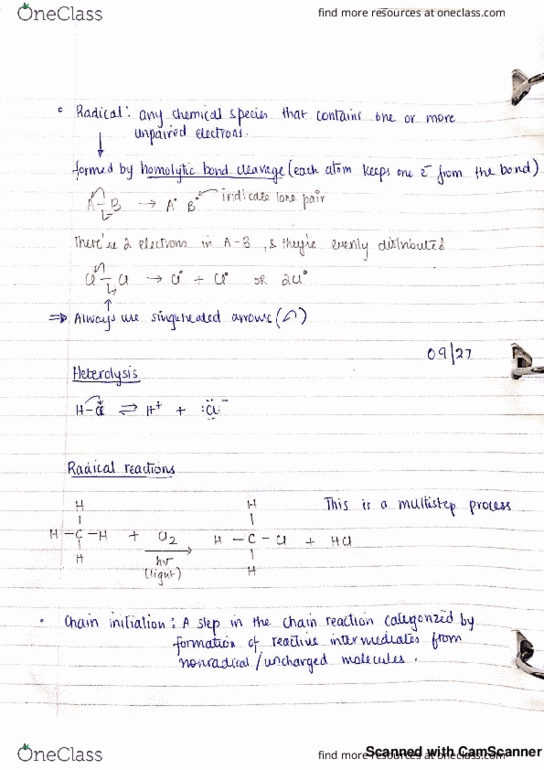 OneClass
find more resources at oneclass.com
Radical: any chemical species that contains one or more
unpaired electrons.
formed by homolytic bond cleavage (each atom keeps one e⁻ from the bond)
A–B → A• B• indicate lone pair
There're 2 electrons in A–B, & they're evenly distributed
Cl–Cl → Cl• + Cl• OR 2Cl•
⇒ Always use singleheaded arrows (⇀)
09/27
Heterolysis
H–Cl ⇌ H⁺ + :Cl:⁻
Radical reactions
This is a multistep process
H H
H–C–H + Cl₂ → H–C–Cl + HCl
H hν H
(light)
• Chain initiation: A step in the chain reaction categorized by
formation of reactive intermediates from
nonradical/uncharged molecules.
OneClass
find more resources at oneclass.com
Scanned with CamScanner